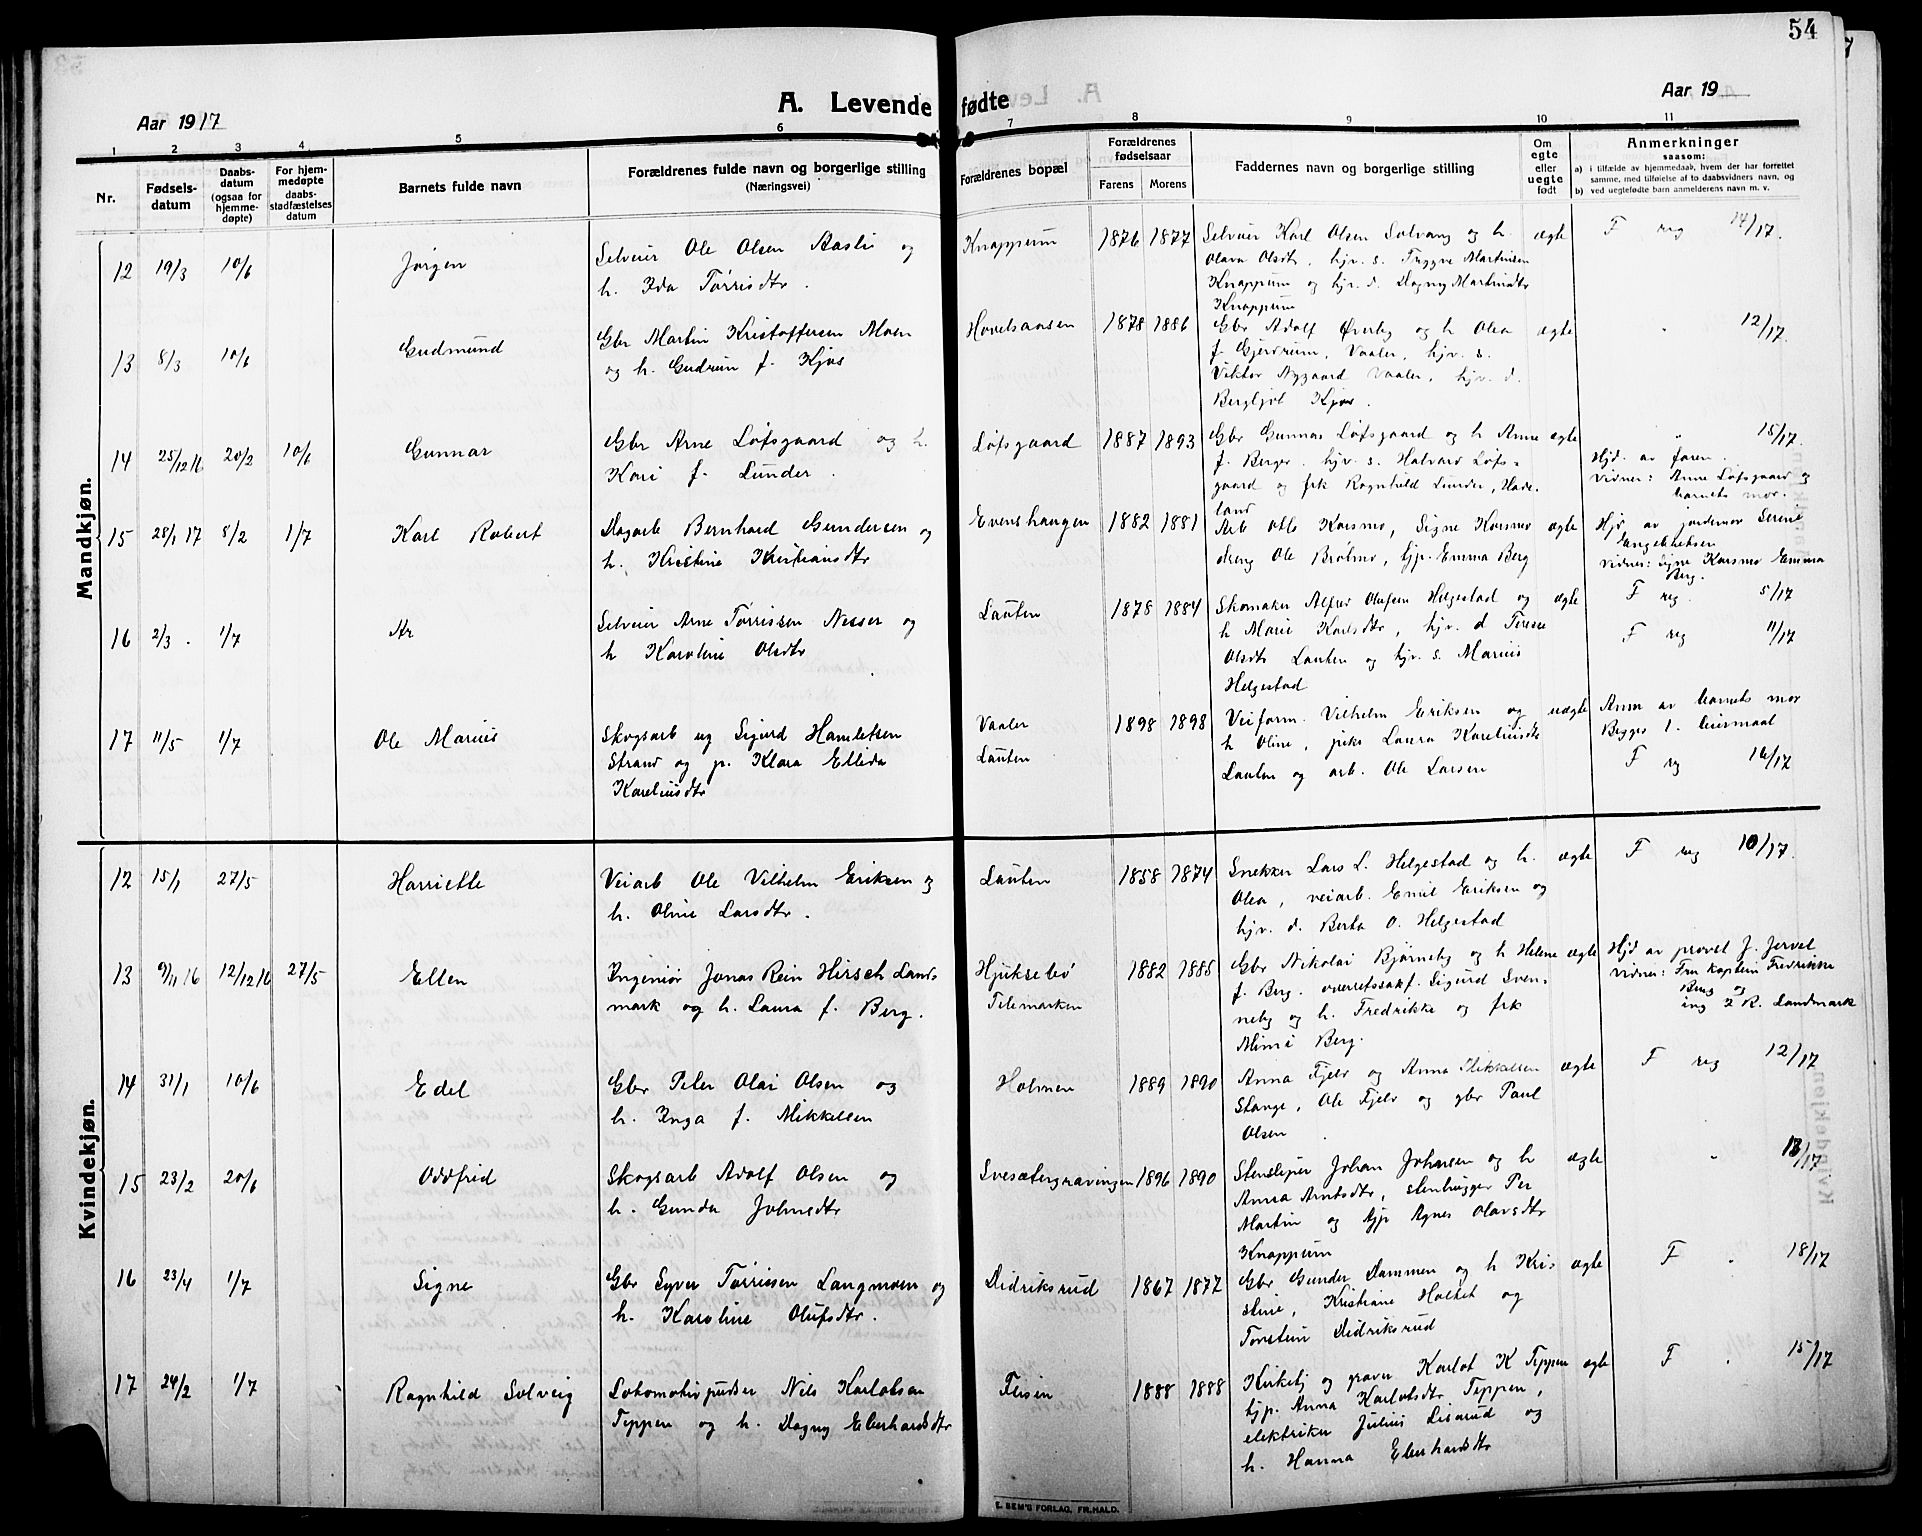 54
A. Levende fødte
Aar 1917
Aar 19
1 2 3 4 5 6 7 8 9 10 11
Nr.
Fødsels-
datum
Daabs-
datum
(ogsaa for
hjemme-
døpte)
For hjem-
medøpte
daabs-
stadfæstelses
datum
Barnets fulde navn
Forældrenes fulde navn og borgerlige stilling
(Næringsvei)
Forældrenes bopæl
Forældrenes
fødselsaar
Farens Morens
Faddernes navn og borgerlige stilling
Om
egte
eller
uegte
født
Anmerkninger
saasom:
a) i tilfælde av hjemmedaab, hvem der har forrettet
samme, med tilføielse af to daabsvidners navn, og
b) ved uegtefødte barn anmelderens navn m. v.
Mandkjøn.
12 19/3 10/6 Jørgen
Selveier Ole Olsen Aasli og
h. Ida Tørrisdtr.
Knappum 1876 1877
Selveier Karl Olsen Solvang og h.
Olava Olsdtr, hjv. s. Tryggve Martinsen
Knappum og hjv. d. Dagny Martinsdtr
Knappum
ægte F reg 14/17.
13 8/3 10/6 Gudmund
Gbr Martin Kristoffersen Moen
og h. Gudrun f. Kjos
Hovelsaasen 1878 1886
Gbr Adolf Øverby og h Olea
f Gjerdrum, Vaaler, hjv. s.
Viktor Nygaard Vaaler, hjv. d.
Bergljot Kjos.
ægte " 12/17.
14 25/12 16 20/2 10/6 Gunnar
Gbr Arne Løfsgaard og h.
Kari f. Lunder.
Løfsgaard 1887 1893
Gbr Gunnar Løfsgaard og h Anne
f. Berger. hjv. s. Halvard Løfs-
gaard og frk Ragnhild Lunder, Hade-
land
ægte " 15/17.
Hjd. av faren.
Vidner: Anne Løfsgaard og
barnets mor.
15 28/1 17 8/2 1/7 Karl Robert
Dagarb Bernhard Gundersen og
h. Kristine Kristiansdtr
Evenshaugen 1882 1881
Arb Olb Korsmo, Signe Korsmo
dreng Ole Brølmo, tjp. Emma Berg
ægte
Hjd av jordemor Serene
Engebretsen
Vidner: Signe Korsmo Emma
Berg.
F reg. 5/17
16 2/3. 1/7 Ar
Selveier Arne Tørrissen Nesser og
h Karoline Olsdtr
Lauten 1878 1884
Skomaker Alfred Olufsen Helgestad og
h Marie Karlsdtr, hjv. d Terese
Olsdtr Lauten og hjv. s. Marius
Helgestad
ægte F reg 11/17
17 11/5 1/7 Ole Marius
Skogsarb ug Sigurd Hamletsen
Strand og p. Klara Ellida
Kareliusdtr
Vaaler
Lauten
1898 1898
Veiform. Vilhelm Eriksen og
h Oline, pike Laura Kareliusdtr
Lauten og arb. Ole Larsen
uægte
Anm av barnets mor
Begges 1. leiermaal
F reg 16/17
Kvindekjøn.
12 15/1 27/5 Harriette
Veiarb Ole Vilhelm Eriksen og
h. Oline Larsdtr.
Lauten 1858 1874
Snekker Lars L. Helgestad og h.
Olea, veiarb. Emil Eriksen og
hjv. d. Berta O. Helgestad
ægte F reg 10/17.
13 9/11 16 12/12 16 27/5 Ellen
Ingeniør Jonas Rein Hirsch Land-
mark og h. Laura f. Berg.
Hjuksebø
Telemarken
1882 1885
Gbr Nikolai Bjørneby og h Helene
f. Berg. overretssakf. Sigurd Sven-
neby og h. Fredrikke og frk
Mimi Berg.
ægte
Hjd av provst J. Jervel
vidner: Fru kaptein Fredrikke
Berg og
ing J R. Landmark
14 31/1 10/6 Edel
Gbr Peter Olai Olsen og
h. Inga f. Mikkelsen
Holmen 1889 1890
Anna Fjeld og Anna Mikkelsen
Stange, Ole Fjeld og gbr Paul
Olsen
ægte F reg 12/17
15 23/2 20/6 Oddfrid
Skogsarb Adolf Olsen og
h. Gunda Johnsdtr
Svesætergravingen 1896 1890
Stensliper Johan Johnsen og h
Anna Arntsdtr, stenhugger Per
Martin og tjp Agnes Olavsdtr
Knappum
ægte " 13/17
16 23/4 1/7 Signe
Gbr Syver Tørrissen Langmoen og
h. Karoline Olufsdtr.
Didriksrud 1867 1872
Gbr Gunder Dammen og h Kris-
stine, Kristiane Holtet og
Torstein Didriksrud
ægte F " 18/17
17 24/2 1/7 Ragnhild Solveig
Lokomotivpudser Nils Karlotsen
Teppen og h. Dagny Eberhardsdtr
Flisen 1888 1888
Kirketj og graver Karlot K Teppen
hjp. Anna Karlotsdtr Teppen,
elektriker Julius Liserud og
h. Hanna Eberhardsdtr
ægte F " 15/17
E. SEM'S FORLAG, FR.HALD.